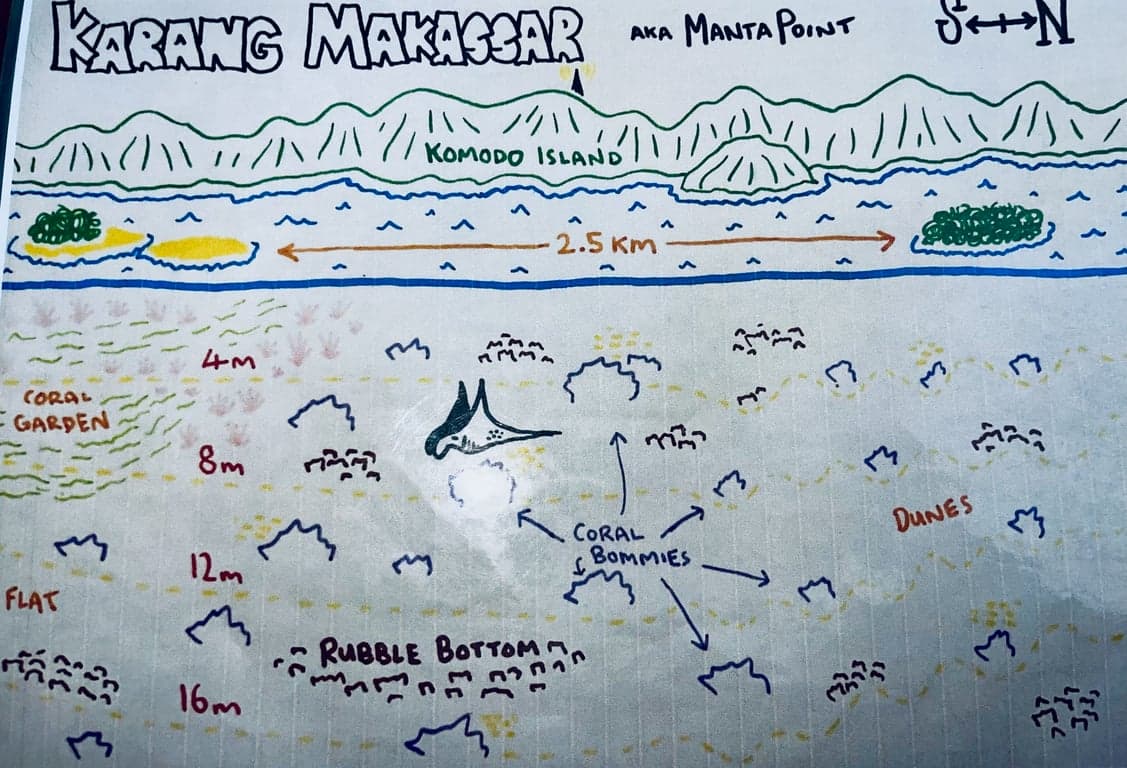 KARANG MAKASSAR AKA MANTA POINT S N
KOMODO ISLAND
2.5 KM
4m
CORAL
GARDEN
8m
DUNES
CORAL
BOMMIES
12m
FLAT
RUBBLE BOTTOM
16m